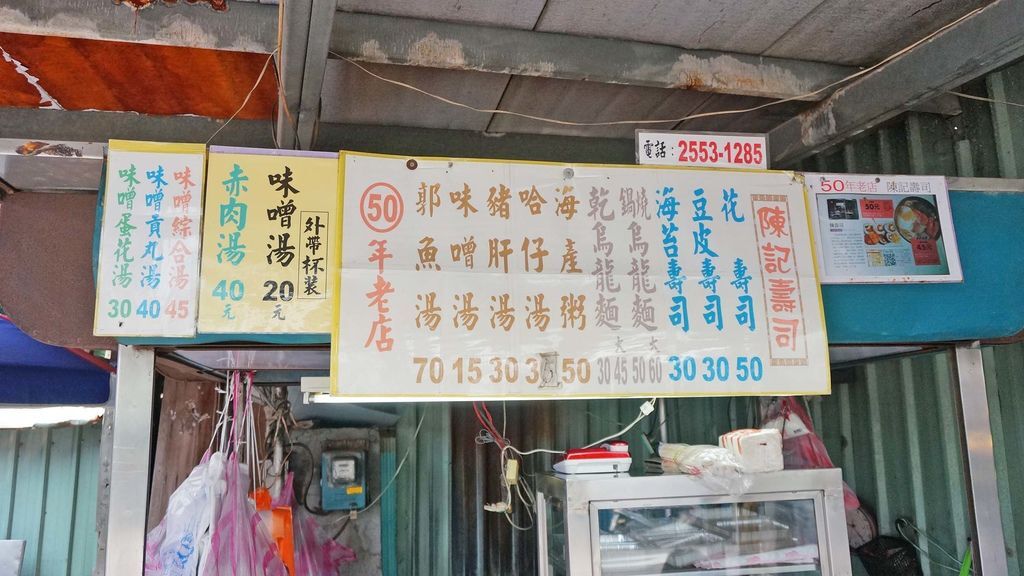 電話：2553-1285
50年老店 陳記壽司
陳記壽司
花壽司 50
豆皮壽司 30
海苔壽司 30
鍋燒烏龍麵 大 50 60
乾烏龍麵 大 30 45
海產粥 50
哈仔湯
豬肝湯 30
味噌湯 15
郭魚湯 70
50年老店
味噌湯 20元
外帶杯裝
赤肉湯 40元
味噌綜合湯 45
味噌貢丸湯 40
味噌蛋花湯 30